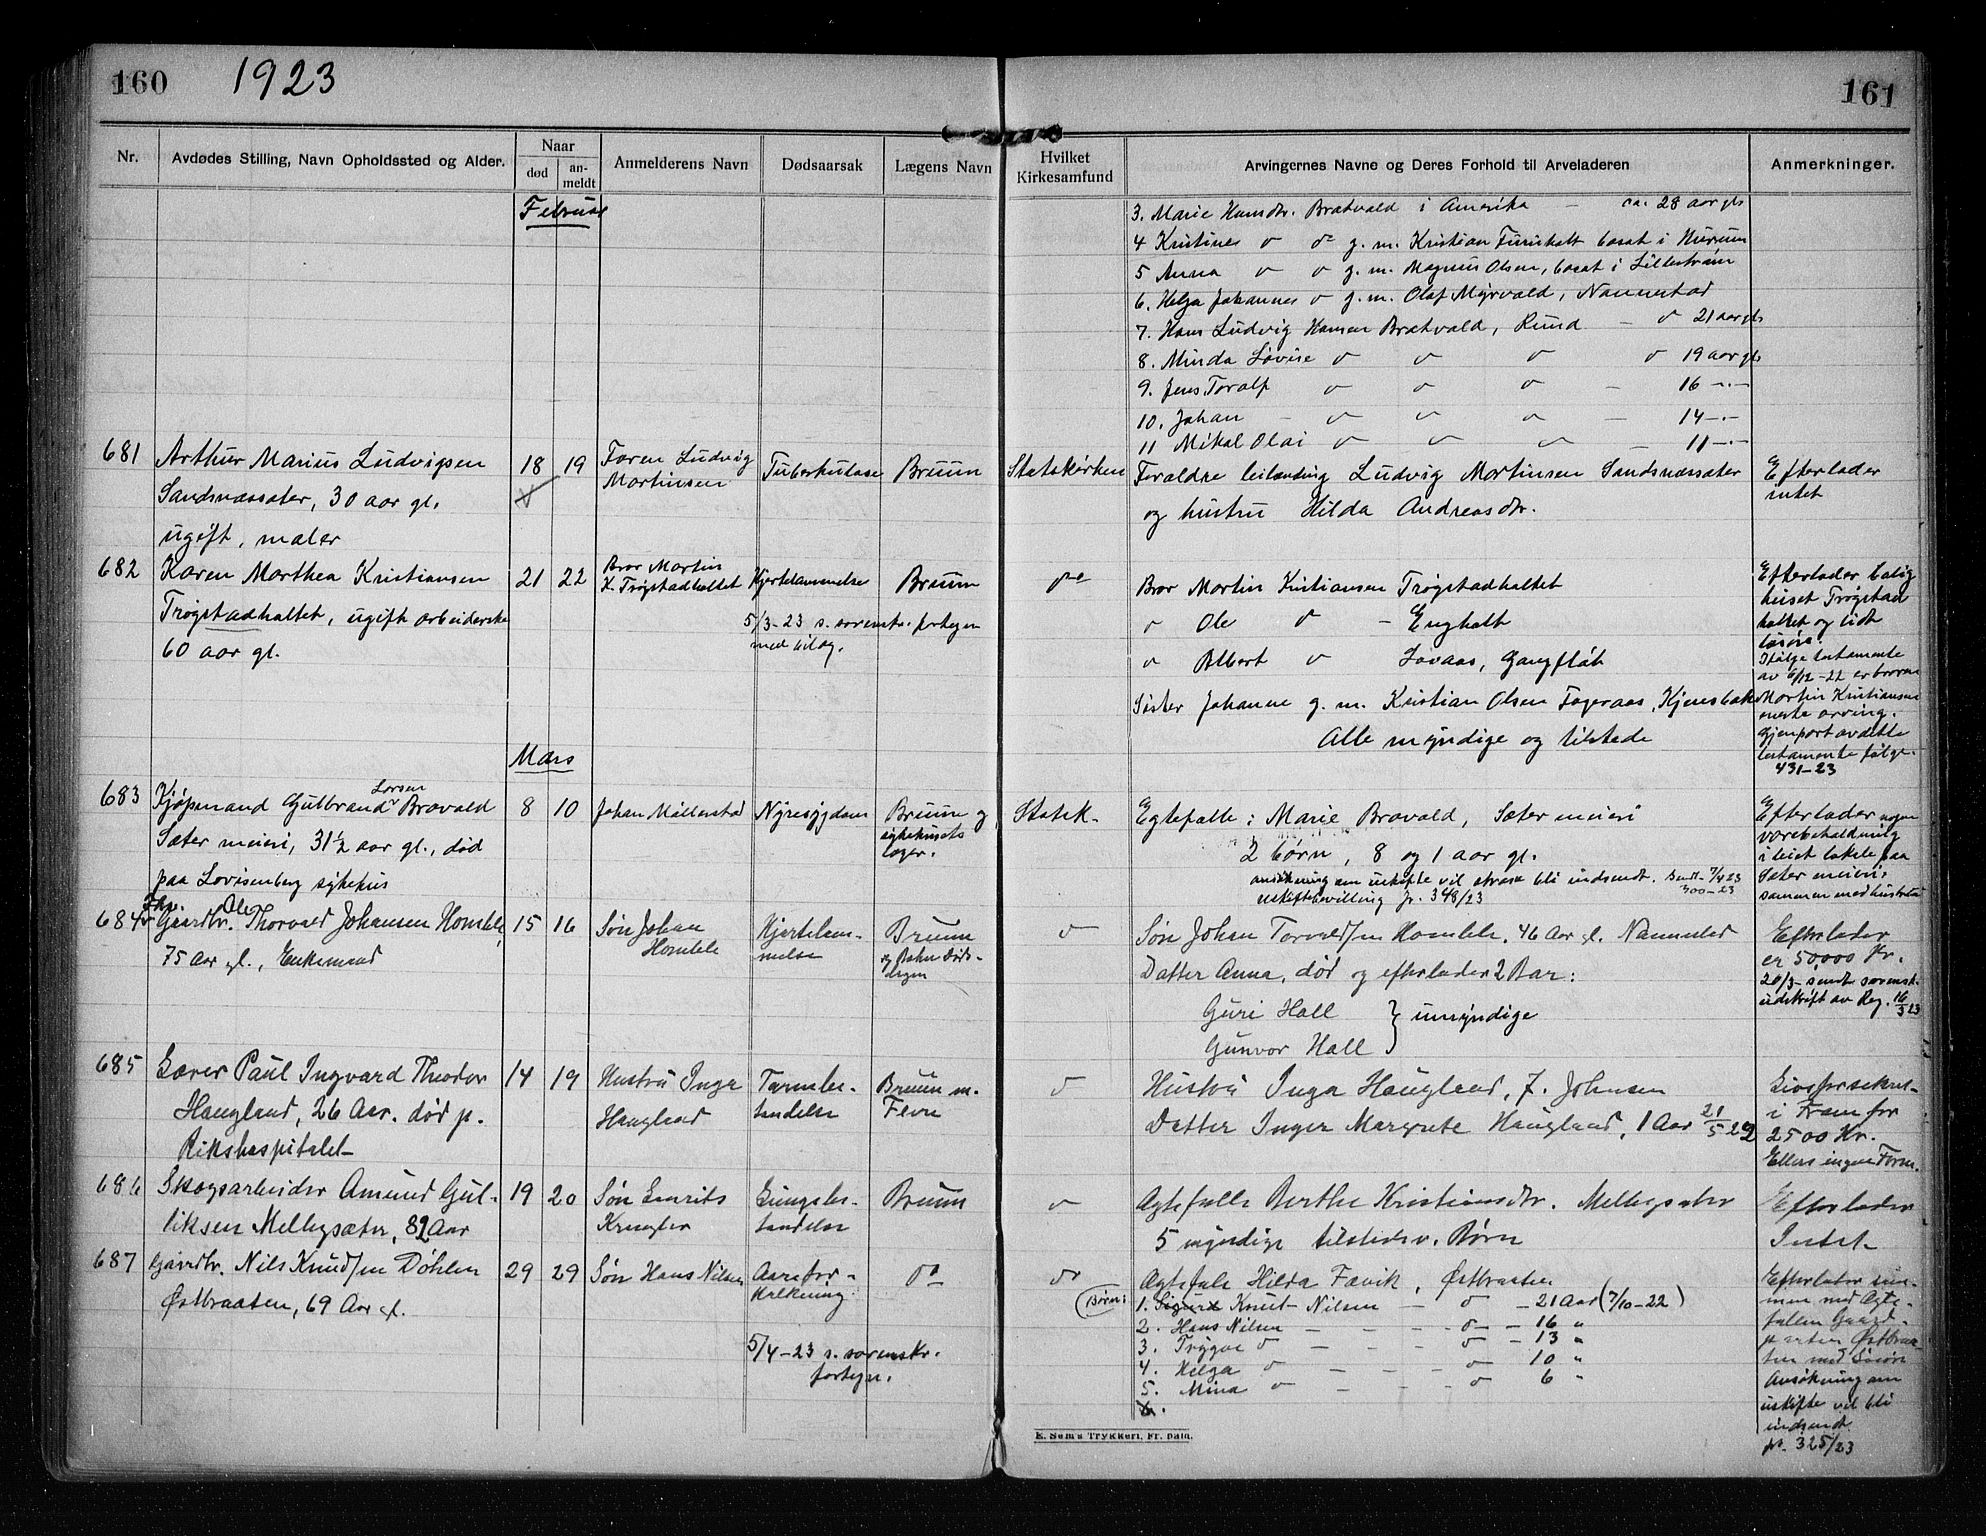 160 1923
161
Nr. Avdødes Stilling, Navn Opholdssted og Alder. Naar død an-meldt Anmelderens Navn Dødsaarsak Lægens Navn Hvilket Kirkesamfund Arvingernes Navne og Deres Forhold til Arveladeren Anmerkninger.
Februar
3. Marie Hansdtr. Bratvald i Amerika - ca. 28 aar gl.
4 Kristines g. m. Kristian bosat i
5 Anna g. m. Magnus Olsen, bosat i Lillestrøm
6. Helga Johannes g. m. Olaf Myrvald, Nannestad
7. Hans Ludvig Hansen Bratvald, Rund - 21 aar gl.
8. Minda Lovise 19 aar gl.
9. Jens Toralf - 16 -"-
10. Johan - 14 -"-
11 Mikal Olai - 11 -"-
681 Arthur Marius Ludvigsen 18 19 Faren Ludvig Tuberkulose Bruun Statskirken Foraldre leilænding Ludvig Martinsen Sandsnæssæter Efterlader
Sandsnæssæter, 30 aar gl. Martinsen og hustru Hilda Andreasdtr. intet
ugift, maler
682 Karen Marthea Kristiansen 21 22 Bror Martin Hjertelammelse Bruun Bror Martin Kristiansen Trøgstadhaltet Efterlader bolig
Trøgstadhaltet, ugift arbeiderske K. Trøgstadhaltet 5/3-23 s. sorenskr. fortegn Ole - Enghalt huset Trøgstad
60 aar gl. med bilag. Albert Lovaas, Gangfløt haltet og lidt
løsøre.
Ifølge testamente
av 6/12-22 er broren
Søster Johanne g. m. Kristian Olsen Fageraas, Kjensbak Martin Kristiansen
eneste arving.
Alle myndige og tilstede Gjenpart av dette
testamente følge.
431-23
Mars
683 Kjøpmand Gulbrand Larsen Bravald 8 10 Johan Møllerstad Nyresygdom Bruun og Statsk. Egtefælle: Marie Bravald, Sæter meieri Efterlader
Sæter meieri, 31½ aar gl., død sykehusets 2 børn, 8 og 1 aar gl. i leiet lokale paa
paa Lovisenberg sykehus læger. ansøkning om uskifte vil straks bli indsendt. Sendt 7/4 23 Sæter meieri,
uskiftebevilling jr. 348/23 300-23 sammen med hustru
684 Fhv. Gaardbr. Ole Thorvald Johansen Homble, 15 16 Søn Johan Hjertelam- Bruun Søn Johan Torvaldsen Homble, 46 Aar gl. Nannestad Efterlader
75 Aar gl., Enkemand Homble melse Datter Anna, død og efterlader 2 Bar: er 50,000 Kr.
Guri Hall } umyndige 20/3 sendt sorensk.
Gunvor Hall udskrift av Reg. 16/3 23
685 Paul Ingvard Theodor 14 19 Hustru Inga Tarmbe- Bruun m. Hustru Inga Haugland, f. Johnsen Livsforsekret
Haugland, 26 Aar. død p. Haugland tændelse Flere Datter Inger Margrete Haugland, 1 Aar 21/5 22 i Fram for
Rikshospitalet 2500 Kr.
Ellers ingen Form.
686 Skogsarbeider Amund Gul- 19 20 Søn Lungebe- Bruun Ægtefælle Berthe Kristiansdtr. Mellegsæter Efterlader
liksen Mellegsæter, 82 Aar tændelse 5 myndige tilstedev. Børn Intet
687 Gaardbr. Nils Knudsen Døhlen 29 29 Søn Hans Nilsen Aarefor- Ægtefæle Hilda Fævik, Østbraaten Efterlader sam-
Østbraaten, 69 Aar gl. kalkning Børn: 1. Sigurd Knut Nilsen - 21 Aar (7/10-22) men med Ægte-
2. Hans Nilsen - 16 " fællen Gaard-
5/4-23 s. sorenskr. 3. Trygve - 13 " parten Østbraa-
fortegn. 4. Helga - 10 " ten med Løsøre
5. Mina - 6 " Ansøkning om
6. uskifte vil bli
indsendt.
jr. 325/23
E. Sem's Trykkeri, Fr.hald.